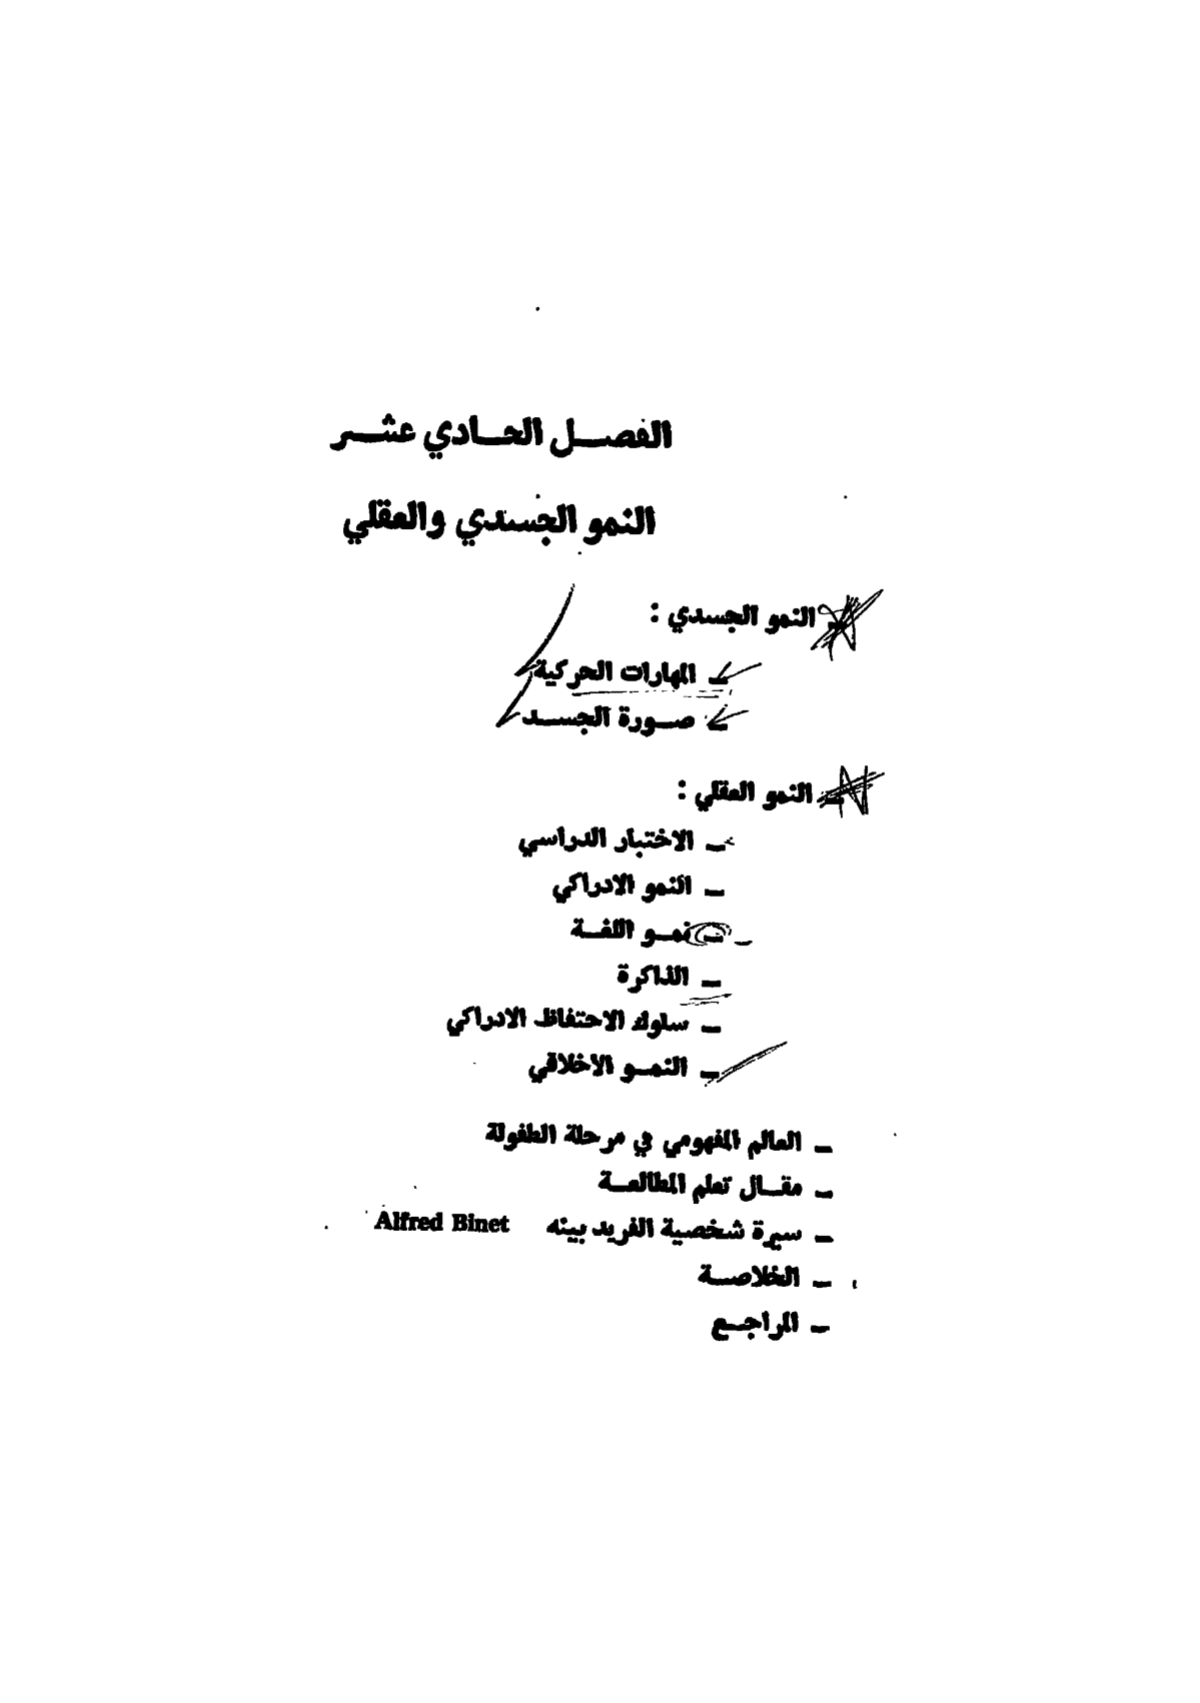 الفصل الحادي عشر
النمو الجسدي والعقلي
ـ النمو الجسدي :
ـ المهارات الحركية
ـ صورة الجسد
ـ النمو العقلي :
ـ الاختبار الدراسي
ـ النمو الادراكي
ـ نمو اللغة
ـ الذاكرة
ـ سلوك الاحتفاظ الادراكي
ـ النمو الاخلاقي
ـ العالم المفهومي في مرحلة الطفولة
ـ مقال تعلم المطالعة
ـ سيرة شخصية الفريد بينه Alfred Binet
ـ الخلاصة
ـ المراجع